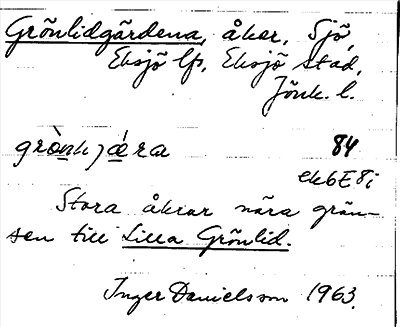 Grönlidgärdena, åker, Sjö,
Eksjö lfs, Eksjö stad,
Jönk. l.
84
ek6E8i
Stora åkrar nära grän-
sen till Lilla Grönlid.
Inger Danielsson 1963.